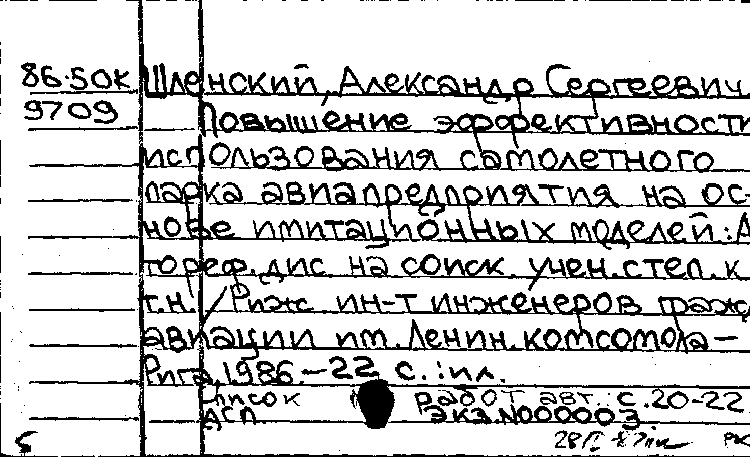 86-50К Шленский, Александр Сергеевич
9709 Повышение эффективности
использования самолетного
парка авиапредприятия на ос-
нове имитационных моделей: А
тореф. дис. на соиск. учен. степ. к
т.н. / Риж. ин-т инженеров граж
авиации им. Ленин. комсомола –
Рига, 1986. – 22 с. : ил.
Список работ авт.: с. 20-22
ДСП Экз. N000003.